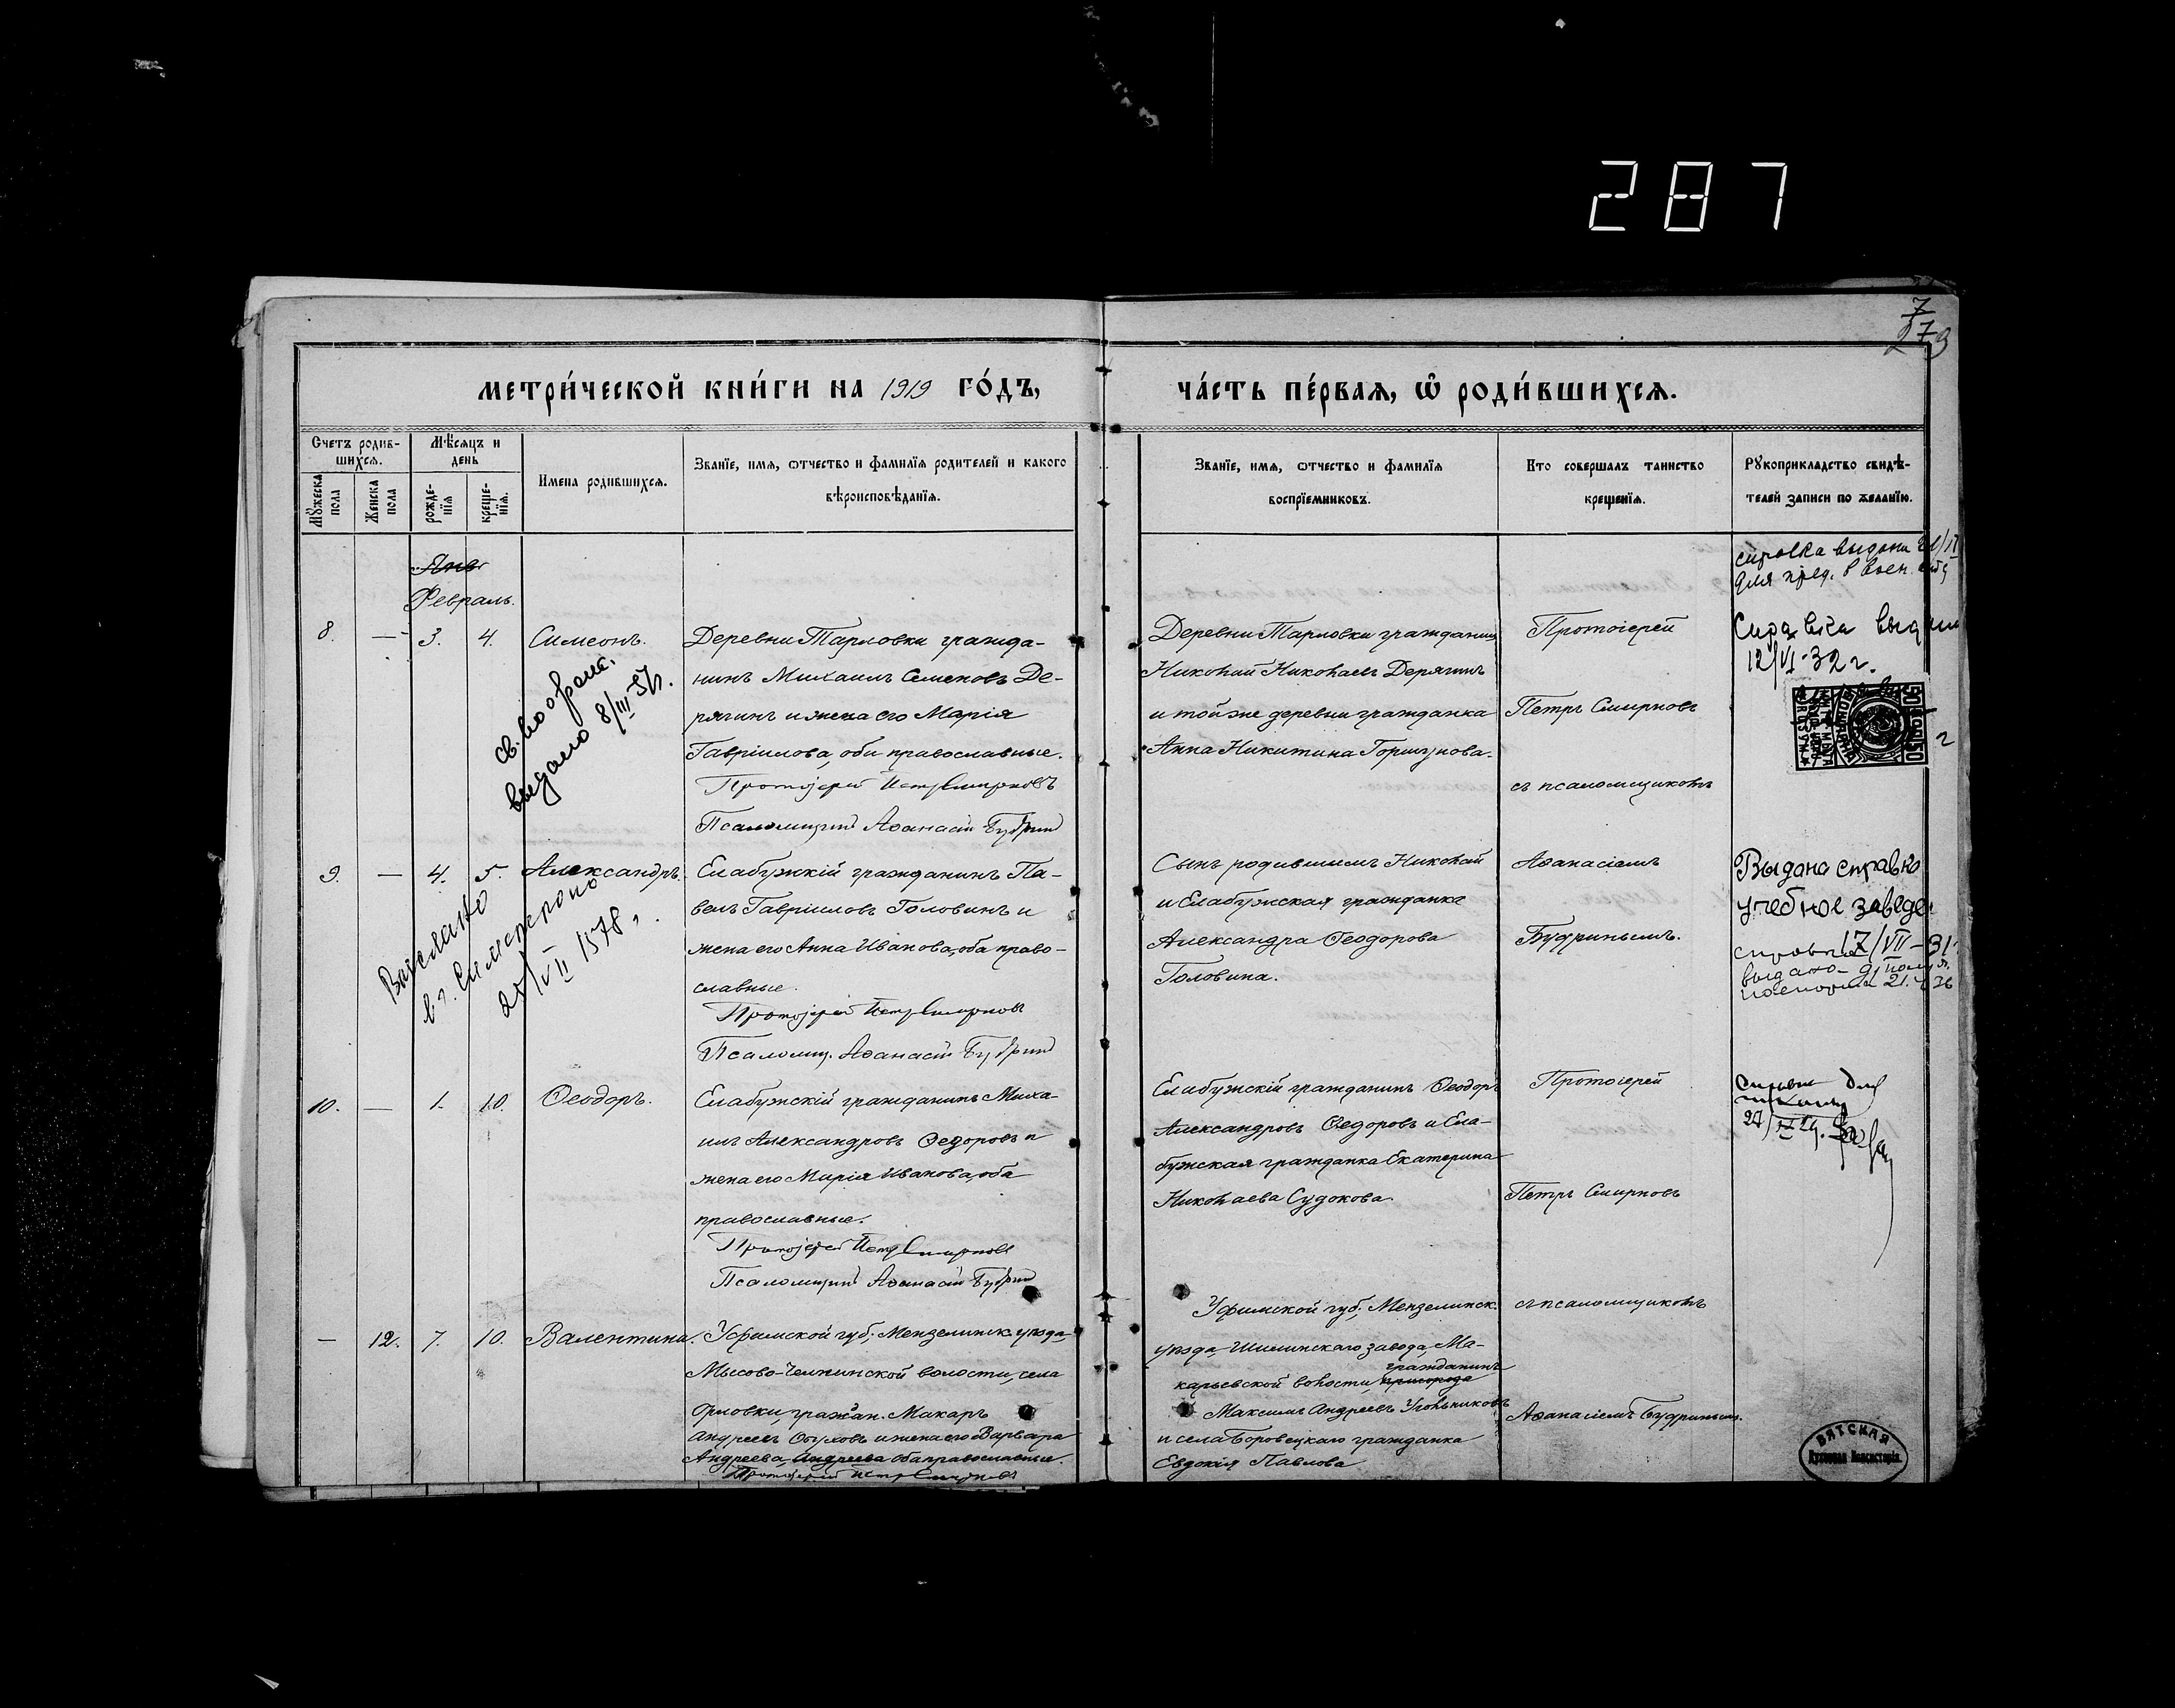 287
7
279
МЕТРИ́ЧЕСКОЙ КНИ́ГИ НА 1919 ГО́ДЪ,
ЧА́СТЬ ПЕ́РВАЯ, Ѡ҆ РОДИ́ВШИХСЯ.
Счетъ родив-
шихся.
Мѣсяцъ и
день
Мужеска
пола
Женска
пола
рожде-
нїя
креще-
нїя.
Имена родившихся.
Званїе, имя, ѿтчество и фамилїя родителей и какого
вѣроисповѣданїя.
Званїе, имя, ѿтчество и фамилїя
воспрїемниковъ.
Кто совершалъ таинство
крещенїя.
Рꙋкоприкладство свидѣ-
телей записи по желанїю.
Янв
Февраль.
8. — 3. 4. Симеонъ.
Деревни Тарловки гражда-
нинъ Михаилъ Семеновъ Де-
рягинъ и жена его Марія
Гавріилова, оба православные.
Протоіерей Петръ Смирновъ
Псаломщикъ Аѳанасій Будринъ
св-во о рожд.
выдано 8/III
Деревни Тарловки гражданинъ
Николай Николаевъ Дерягинъ
и той же деревни гражданка
Анна Никитина Горшунова.
Протоіерей
Петръ Смирновъ
съ псаломщикомъ
справка выдана
для пред. в воен.
Справка выдана
12/VI-32 г.
50 КОП 50
9. — 4. 5. Александръ.
Елабужскій гражданинъ Па-
велъ Гавріиловъ Головинъ и
жена его Анна Иванова, оба право-
славные.
Протоіерей Петръ Смирновъ
Псаломщ. Аѳанасій Будринъ
Выслано
в г. Симферополь
Сынъ родившимъ Николай
и Елабужская гражданка
Александра Ѳеодорова
Головина.
Аѳанасіемъ
Будринымъ.
Выдана справка
учебное завед
справка 17/VII-31
выдано
паспорта 21.
10. — 1. 10. Ѳеодоръ.
Елабужскій гражданинъ Миха-
илъ Александровъ Ѳедоровъ и
жена его Марія Иванова, оба
православные.
Протоіерей Петръ Смирновъ
Псаломщикъ Аѳанасій Будринъ
Елабужскій гражданинъ Ѳеодоръ
Александровъ Ѳедоровъ и Ела-
бужская гражданка Екатерина
Николаева Судокова.
Протоіерей
Петръ Смирновъ
съ псаломщикомъ
для
школы
— 12. 7. 10. Валентина.
Уфимской губ., Мензелинск. уѣзда,
Мысово-Челнинской волости, села
Орловки, граждан. Макаръ
Андреевъ Обуховъ и жена его Варвара
Андреева, Андреева оба православные.
Протоіерей Петръ Смирновъ
Уфимской губ., Мензелинск.
уѣзда, Шильнинскаго завода, Ма-
карьевской волости, гражданинъ
Максимъ Андреевъ Угольниковъ
и села Боровецкаго гражданка
Евдокія Павлова
Аѳанасіемъ Будринымъ.
ВЯТСКАЯ
Духовная Консисторія.